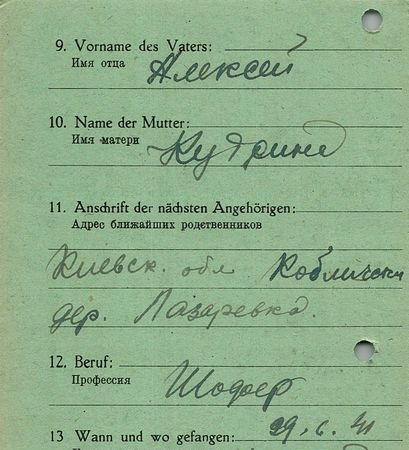 9. Vorname des Vaters:
Имя отца Алексей
10. Name der Mutter:
Имя матери Кудрина
11. Anschrift der nächsten Angehörigen:
Адрес ближайших родственников
Киевск. обл
дер. Лазаревка.
12. Beruf:
Профессия Шофер
13 Wann und wo gefangen: 29. 6. 41